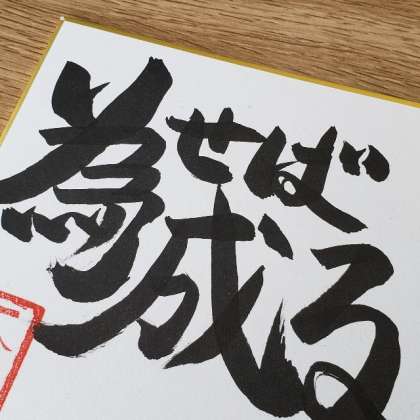 為せば成る